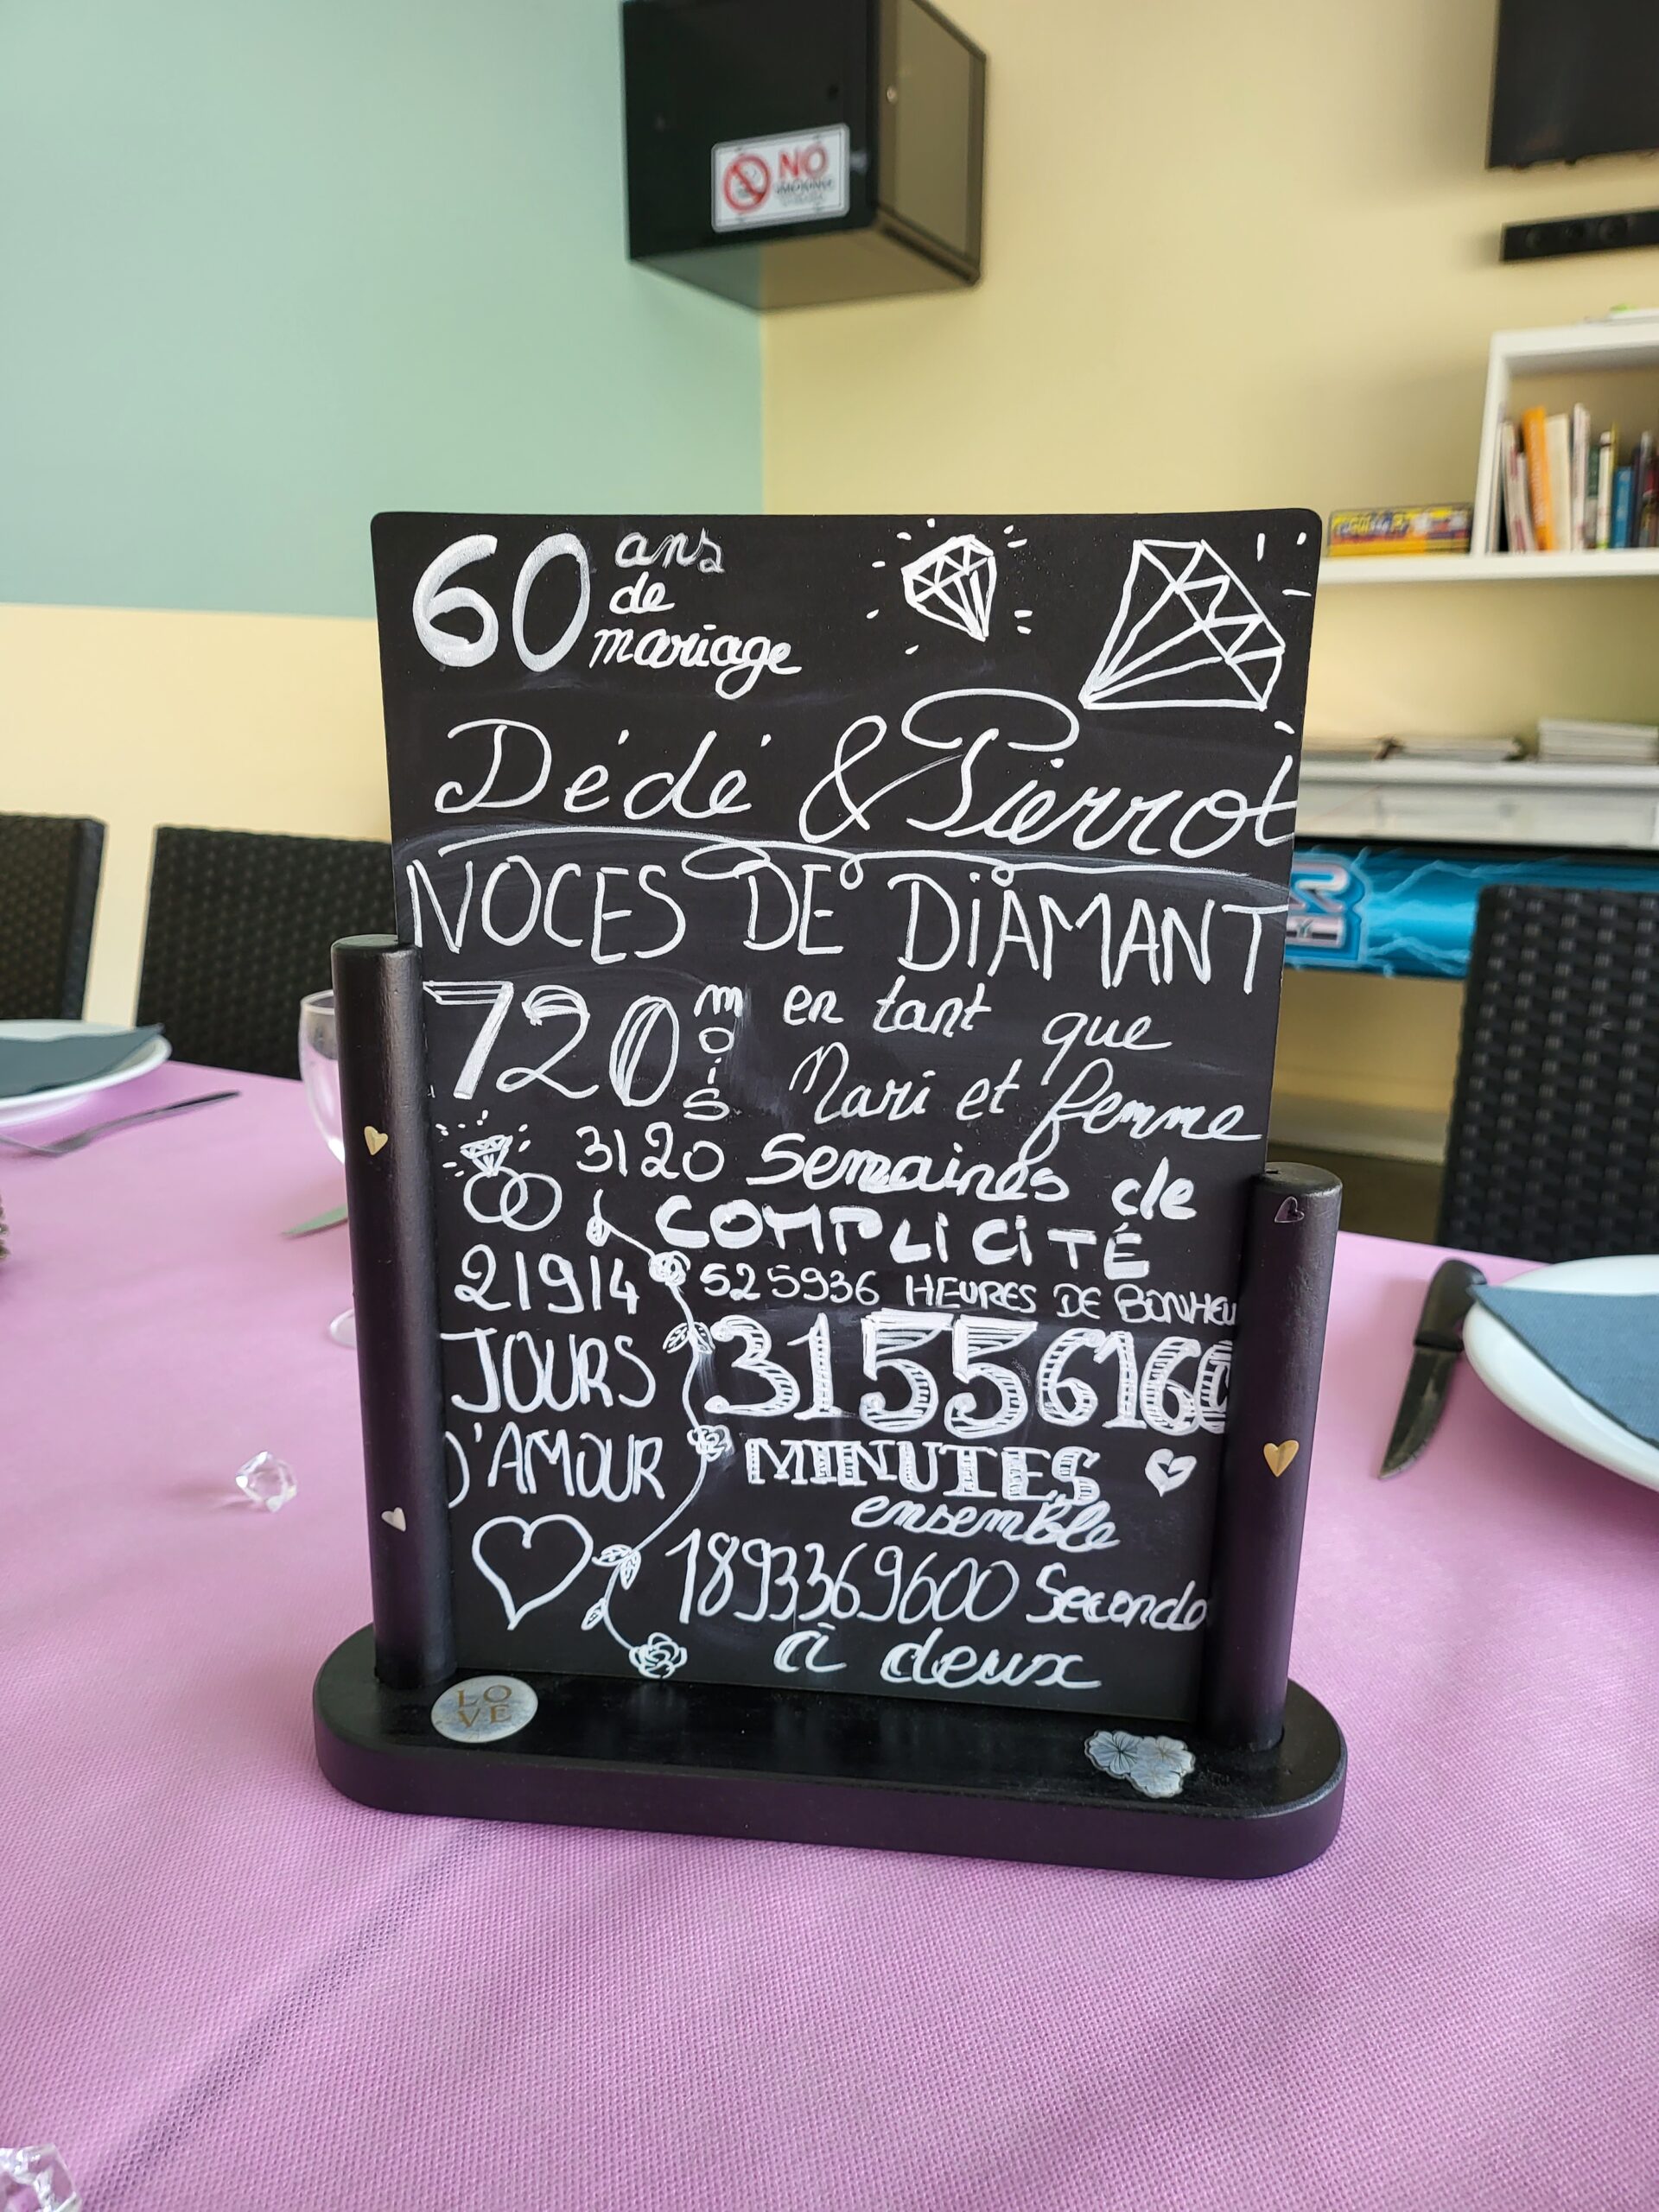 NO
SMOKING
60 ans
de
mariage
Dédé & Pierrot
NOCES DE DiAMANT
720 mois en tant que
Mari et femme
3120 Semaines de
COMPLiCiTÉ
21914
JOURS
D'AMOUR
525936 HEURES DE BONHEU
31556160
MINUTES
ensemble
1893369600 Seconde
à deux
LO
VE